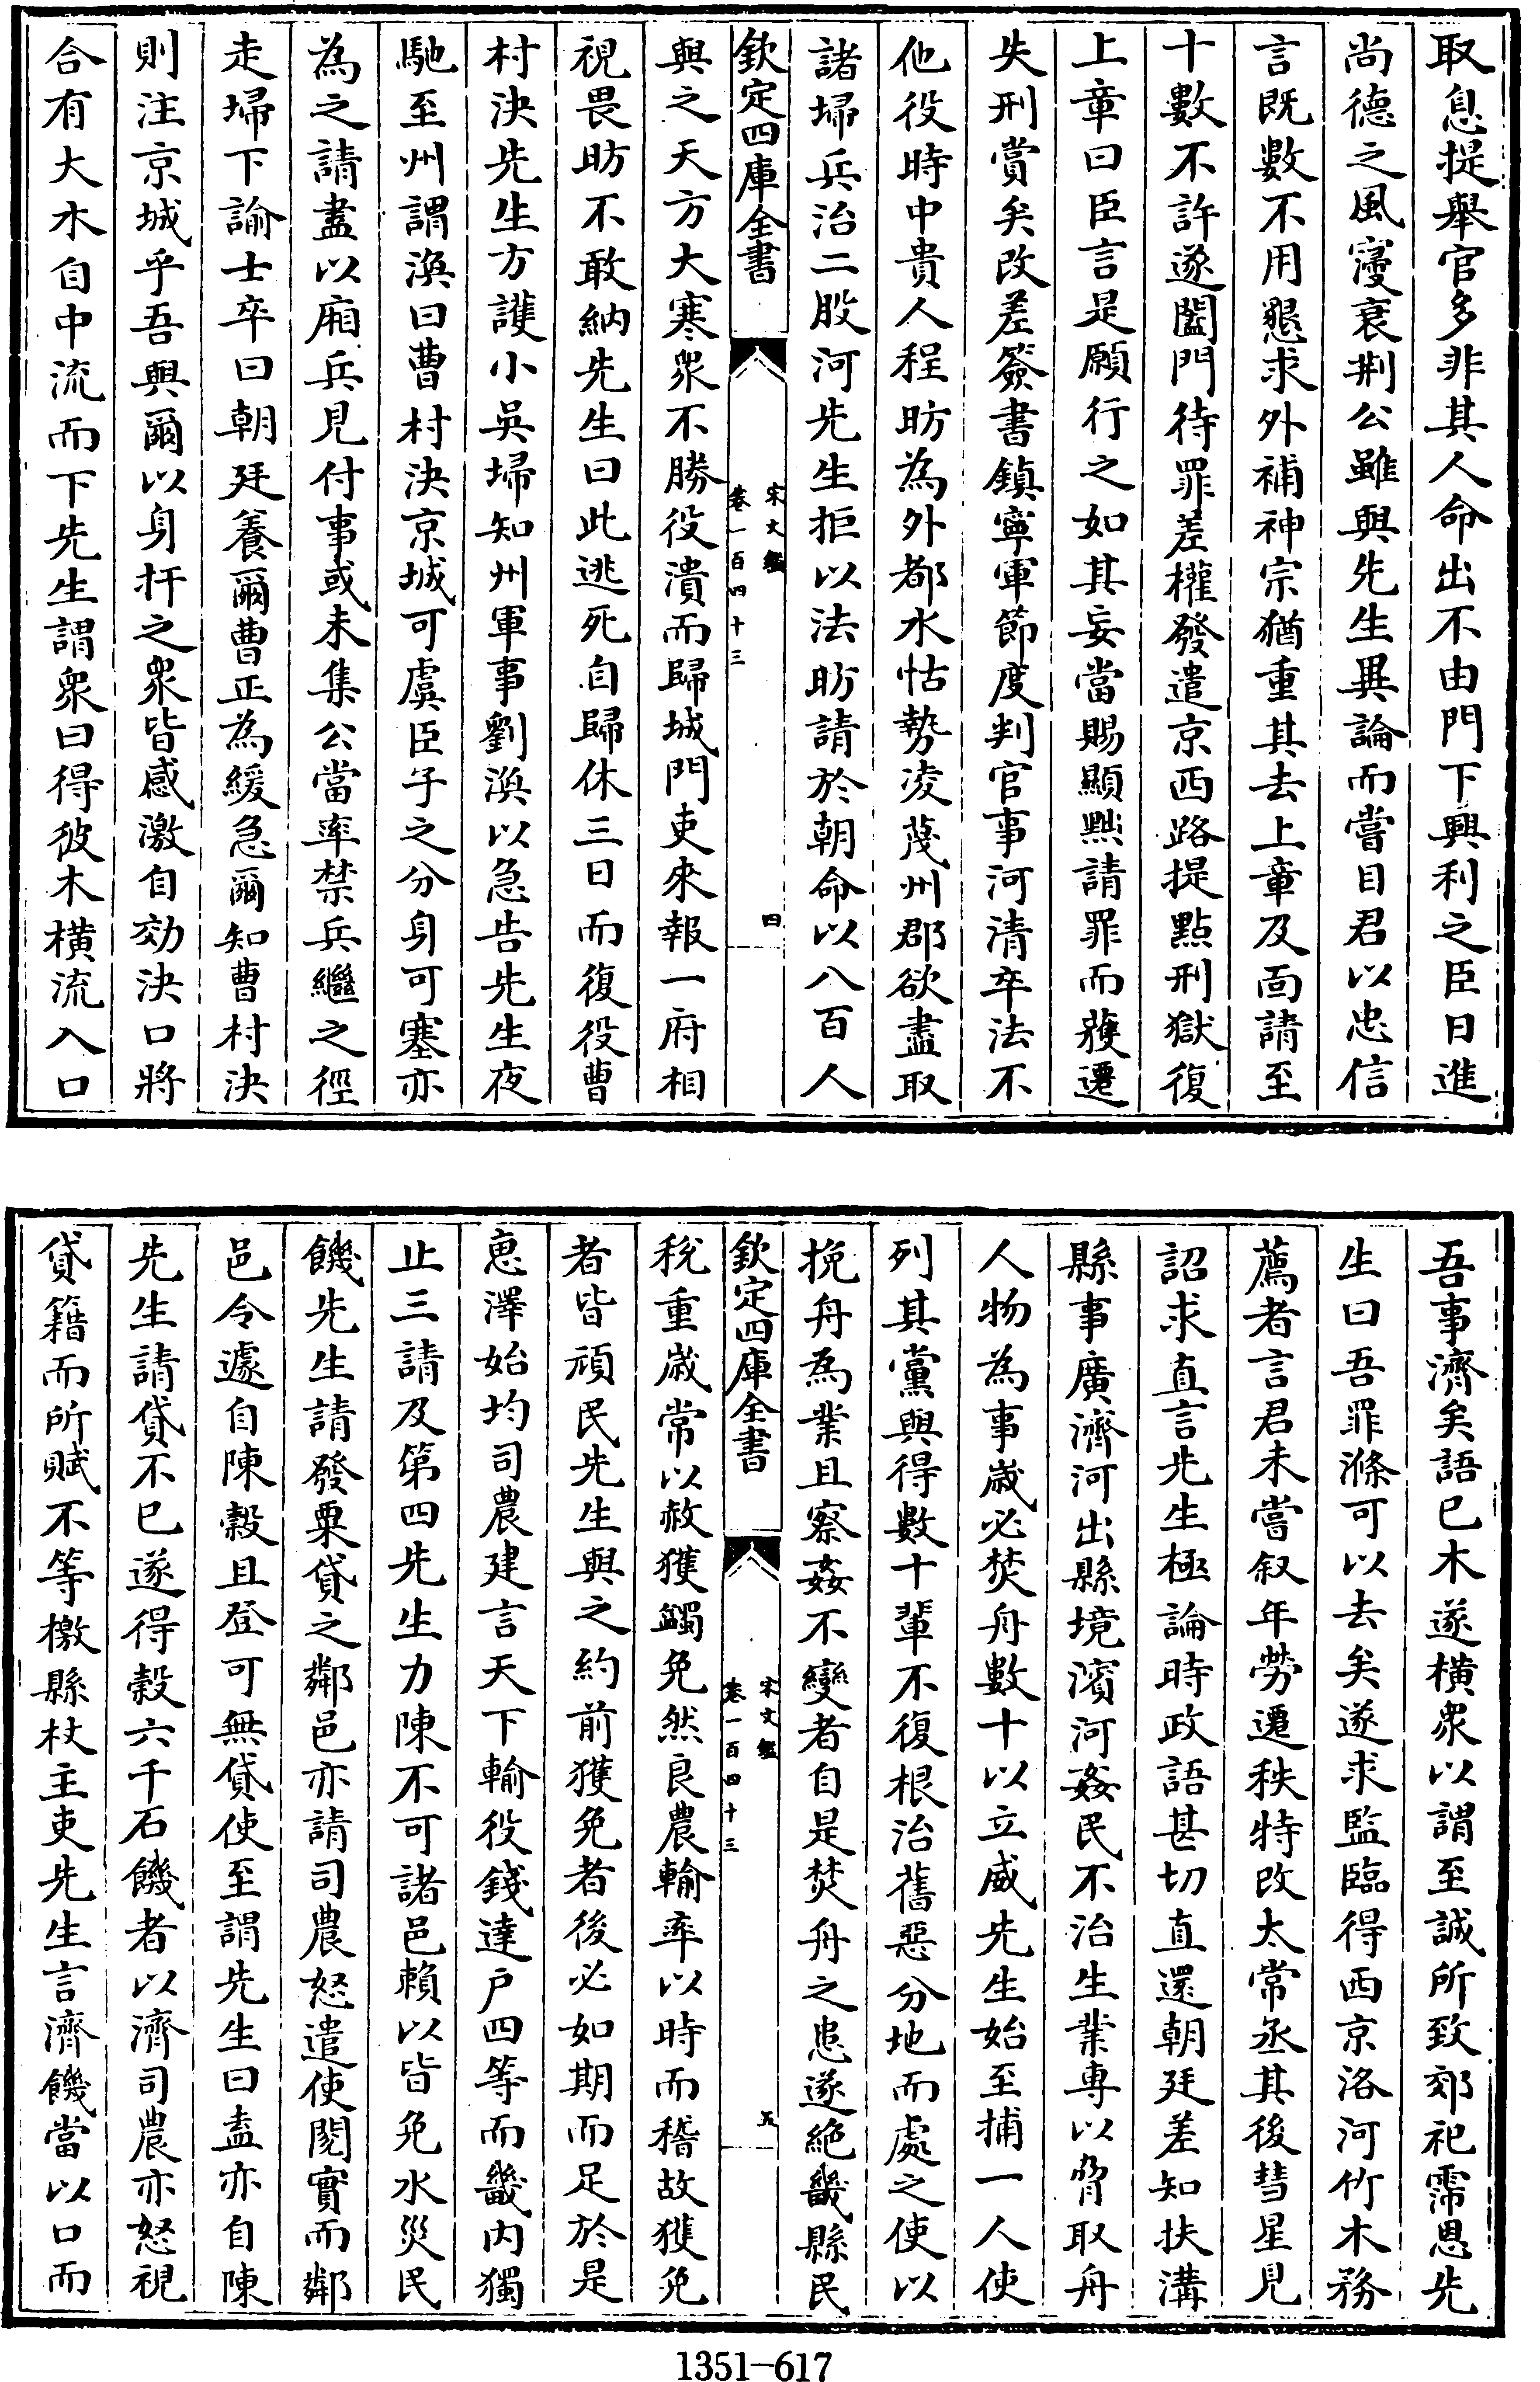 取息提舉官多非其人命出不由門下興利之臣日進
尚德之風寖衰荆公雖與先生異論而嘗目君以忠信
言既數不用懇求外補神宗猶重其去上章及面請至
十數不許遂闔門待罪差權發遣京西路提點刑獄復
上章曰臣言是願行之如其妄當賜顯黜請罪而獲遷
失刑賞矣改差簽書鎮寧軍節度判官事河清卒法不
他役時中貴人程昉為外都水怙勢凌蔑州郡欲盡取
諸埽兵治二股河先生拒以法昉請於朝命以八百人
欽定四庫全書
宋文鑑
卷一百四十三
四
與之天方大寒衆不勝役潰而歸城門吏來報一府相
視畏昉不敢納先生曰此逃死自歸休三日而復役曹
村決先生方護小吳埽知州軍事劉渙以急告先生夜
馳至州謂渙曰曹村決京城可虞臣子之分身可塞亦
為之請盡以廂兵見付事或未集公當率禁兵繼之徑
走埽下諭士卒曰朝廷養爾曹正為緩急爾知曹村決
則注京城乎吾與爾以身扞之衆皆感激自効決口將
合有大木自中流而下先生謂衆曰得彼木橫流入口
吾事濟矣語已木遂橫衆以謂至誠所致郊祀霈恩先
生曰吾罪滌可以去矣遂求監臨得西京洛河竹木務
薦者言君未嘗叙年勞遷秩特改太常丞其後彗星見
詔求直言先生極論時政語甚切直還朝廷差知扶溝
縣事廣濟河出縣境濱河姦民不治生業專以脅取舟
人物為事歲必焚舟數十以立威先生始至捕一人使
列其黨與得數十輩不復根治舊惡分地而處之使以
挽舟為業且察姦不變者自是焚舟之患遂絶畿縣民
欽定四庫全書
宋文鑑
卷一百四十三
五
稅重歲常以赦獲蠲免然良農輸率以時而稽故獲免
者皆頑民先生與之約前獲免者後必如期而足於是
惠澤始均司農建言天下輸役錢達戶四等而畿内獨
止三請及第四先生力陳不可諸邑賴以皆免水災民
饑先生請發粟貸之鄰邑亦請司農怒遣使閱實而鄰
邑令遽自陳穀且登可無貸使至謂先生曰盍亦自陳
先生請貸不已遂得穀六千石饑者以濟司農亦怒視
貸籍而所賦不等檄縣杖主吏先生言濟饑當以口而
1351-617